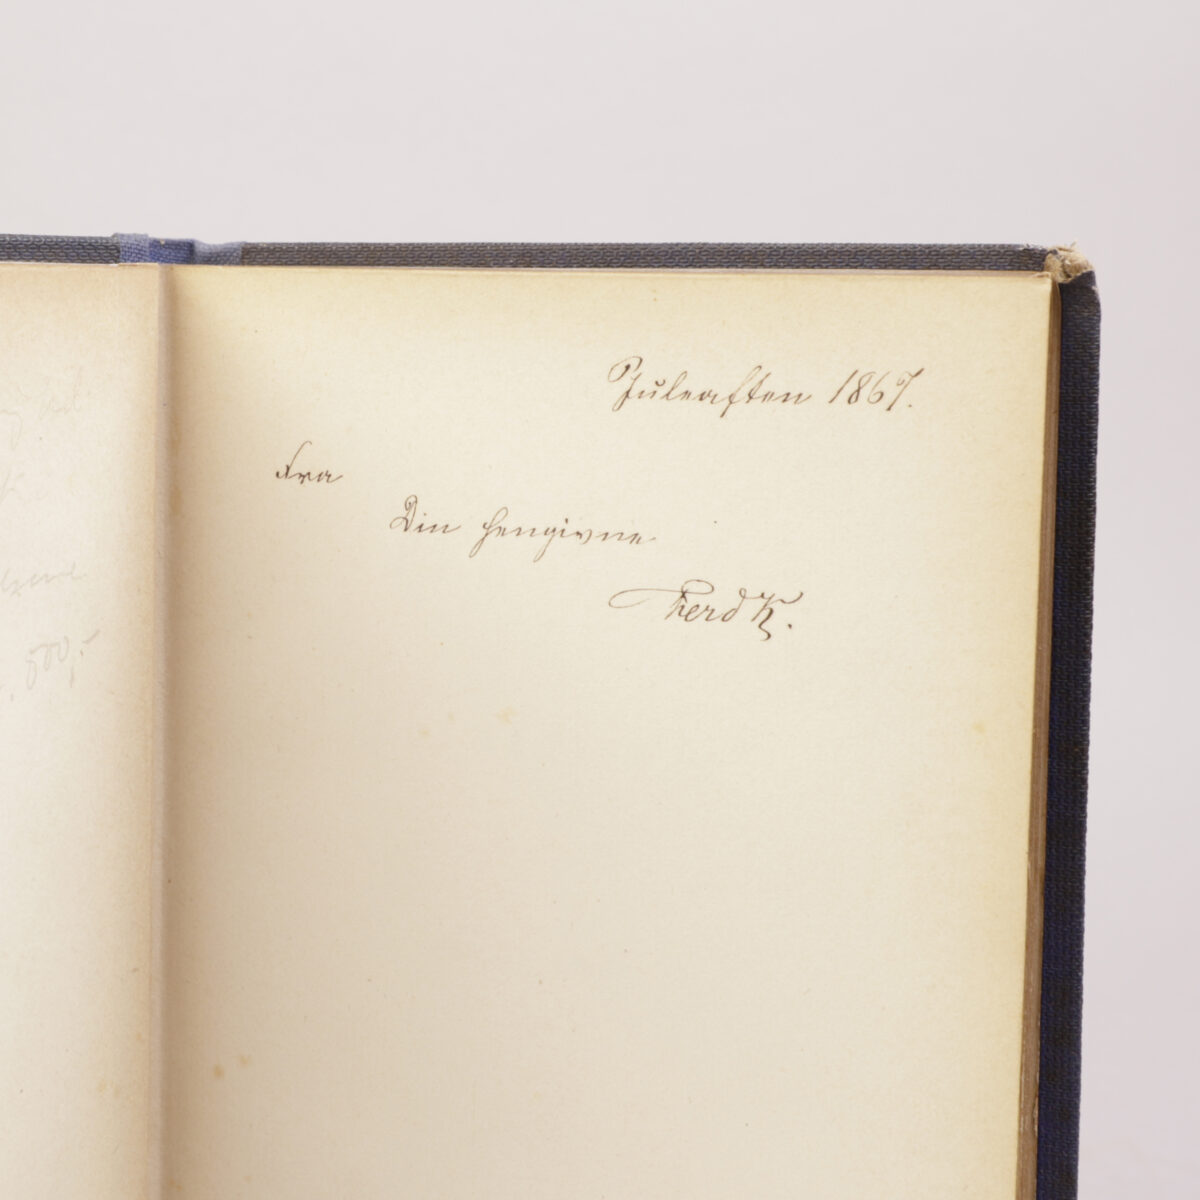 Juleaften 1867.
Fra
Din hengivne
Ferd K.
500,-